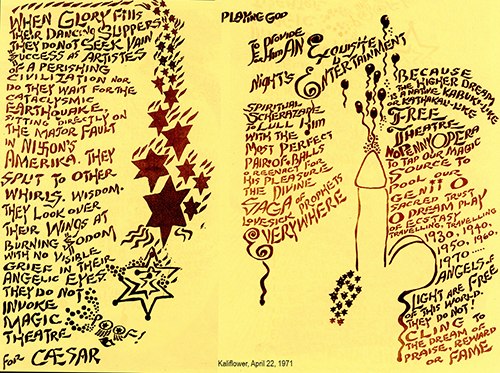 WHEN GLORY FILLS
THEIR DANCING SLIPPERS,
THEY DO NOT SEEK VAIN
SUCCESS AS ARTISTES
OF A PERISHING
CIVILIZATION NOR
DO THEY WAIT FOR THE
CATACLYSMIC
EARTHQUAKE,
SITTING DIRECTLY ON
THE MAJOR FAULT
IN NIXSON'S
AMERIKA. THEY
SPLIT TO OTHER
WHIRLS. WISDOM.
THEY LOOK OVER
THEIR WINGS AT
BURNING SODOM
WITH NO VISIBLE
GRIEF IN THEIR
ANGELIC EYES.
THEY DO NOT
INVOKE
MAGIC
THEATRE
FOR CÆSAR
POOF!
PLAYING GOD
TO PROVIDE
HIM AN EXQUISITE
NIGHT'S ENTERTAINMENT
SPIRITUAL
SCHERAZADE
TO LULL HIM
WITH THE
MOST PERFECT
PAIR OF BALLS
O REENACT FOR
HIS PLEASURE
THE DIVINE
SAGA OF
LOVESICK PROPHETS
EVERYWHERE
BECAUSE
THE HIGHER DREAM
IS A NATIVE KABUKI-LIKE
OR KATHAKALI-LIKE
FREE
THEATRE
NO PENNY OPERA
TO TAP OUR MAGIC
SOURCE TO
POOL OUR
GENII O
SACRED TRUST
O DREAM PLAY
OF ECSTASY
TRAVELLING, TRAVELLING
1930. 1940.
1950. 1960.
1970.....
ANGELS OF
LIGHT ARE FREE
OF THIS WORLD.
THEY DO NOT
CLING TO
THE DREAM OF
PRAISE, REWARD
OR FAME
Kaliflower, April 22, 1971